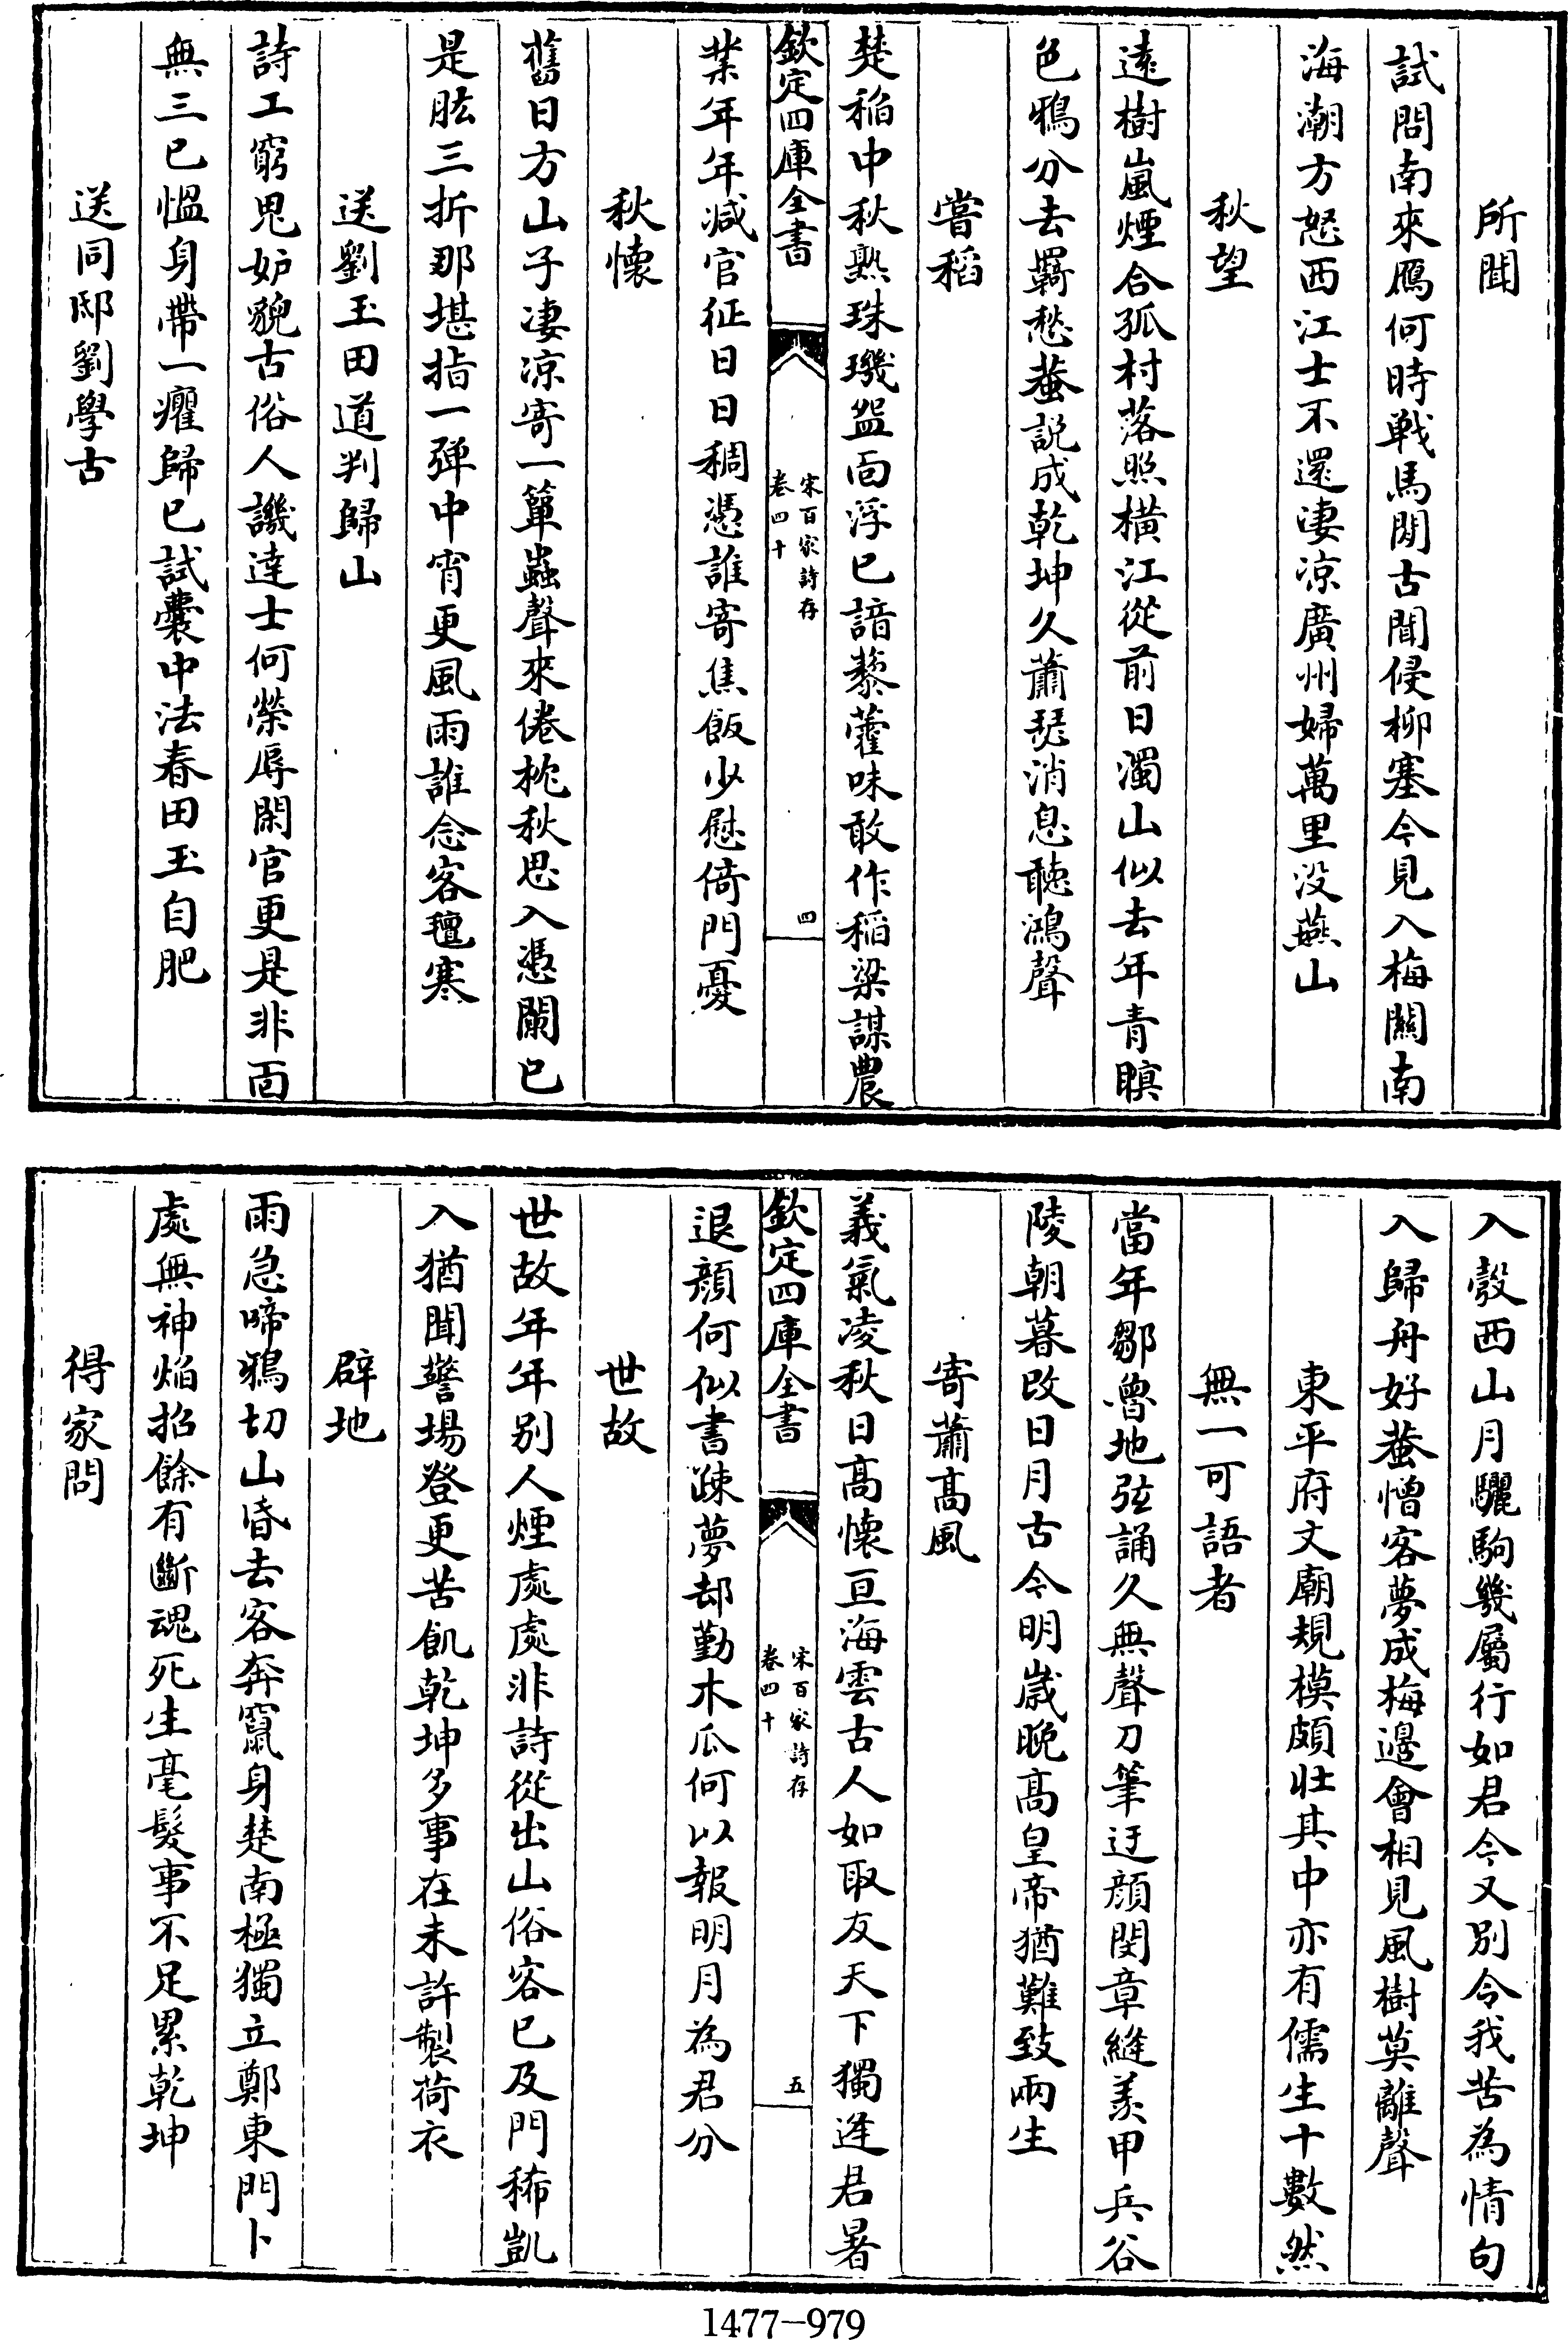 所聞
試問南來鴈何時戰馬閒古聞侵柳塞今見入梅關南
海潮方怒西江士不還淒凉廣州婦萬里没燕山
秋望
遠樹嵐煙合孤村落照橫江從前日濁山似去年青瞑
色鴉分去羇愁蛩説成乾坤久蕭瑟消息聽鴻聲
嘗稻
楚稻中秋熟珠璣盎面浮已諳藜藿味敢作稻粱謀農
欽定四庫全書
宋百家詩存
卷四十
四
業年年減官征日日稠憑誰寄焦飯少慰倚門憂
秋懷
舊日方山子凄凉寄一簞蟲聲來倦枕秋思入憑闌已
是肱三折那堪指一彈中宵更風雨誰念客氊寒
送劉玉田道判歸山
詩工窮鬼妒貌古俗人譏達士何榮辱閑官更是非面
無三已愠身帶一癯歸已試囊中法春田玉自肥
送同邸劉學古
入彀西山月驪駒幾屬行如君今又別令我苦為情句
入歸舟好蛩憎客夢成梅邊會相見風樹莫離聲
東平府文廟規模頗壯其中亦有儒生十數然
無一可語者
當年鄒魯地弦誦久無聲刀筆迂顔閔章縫羡甲兵谷
陵朝暮改日月古今明歲晚髙皇帝猶難致兩生
寄蕭髙風
義氣凌秋日髙懷亘海雲古人如取友天下獨逢君暑
欽定四庫全書
宋百家詩存
卷四十
五
退顔何似書疎夢却勤木瓜何以報明月為君分
世故
世故年年别人煙處處非詩從出山俗客已及門稀豈
入猶聞警場登更苦飢乾坤多事在未許製荷衣
辟地
雨急啼鴉切山昏去客奔竄身楚南極獨立鄭東門卜
處無神焰招餘有斷魂死生毫髮事不足累乾坤
得家問
1477-979